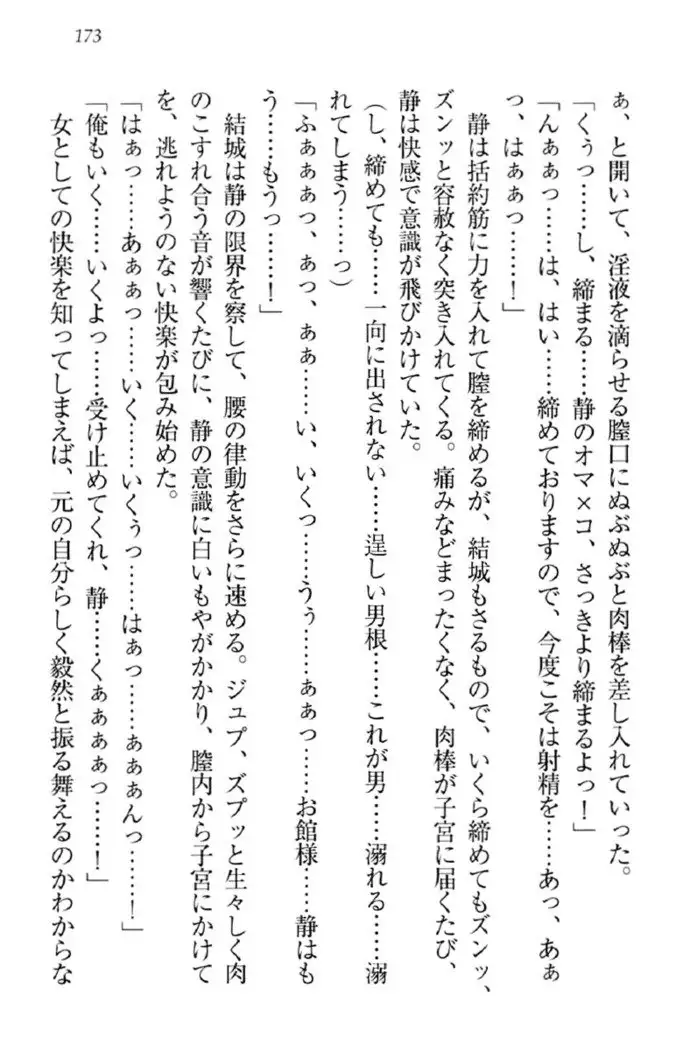 173
ぁ、と開いて、淫液を滴らせる膣口にぬぷぬぷと肉棒を差し入れていった。
「くぅっ……し、締まる……静のオマ×コ、さっきより締まるよっ！」
「んぁぁっ……は、はい……締めておりますので、今度こそは射精を……あっ、あぁ
っ、はぁぁっ……！」
静は括約筋に力を入れて膣を締めるが、結城もさるもので、いくら締めてもズンッ、
ズンッと容赦なく突き入れてくる。痛みなどまったくなく、肉棒が子宮に届くたび、
静は快感で意識が飛びかけていた。
（し、締めても……一向に出されない……逞しい男根……これが男……溺れる……溺
れてしまう……っ）
「ふぁぁぁっ、ぁっ、ぁぁ……い、いくっ……うぅ……ぁぁっ……お館様……静はも
う……もうっ……！」
結城は静の限界を察して、腰の律動をさらに速める。ジュプ、ズプッと生々しく肉
のこすれ合う音が響くたびに、静の意識に白いもやがかかり、膣内から子宮にかけて
を、逃れようのない快楽が包み始めた。
「はぁっ……あぁぁっ……いく……いくぅっ……はぁっ……ぁぁぁんっ……！」
「俺もいく……いくよっ……受け止めてくれ、静……くぁぁぁぁっ……！」
女としての快楽を知ってしまえば、元の自分らしく毅然と振る舞えるのかわからな